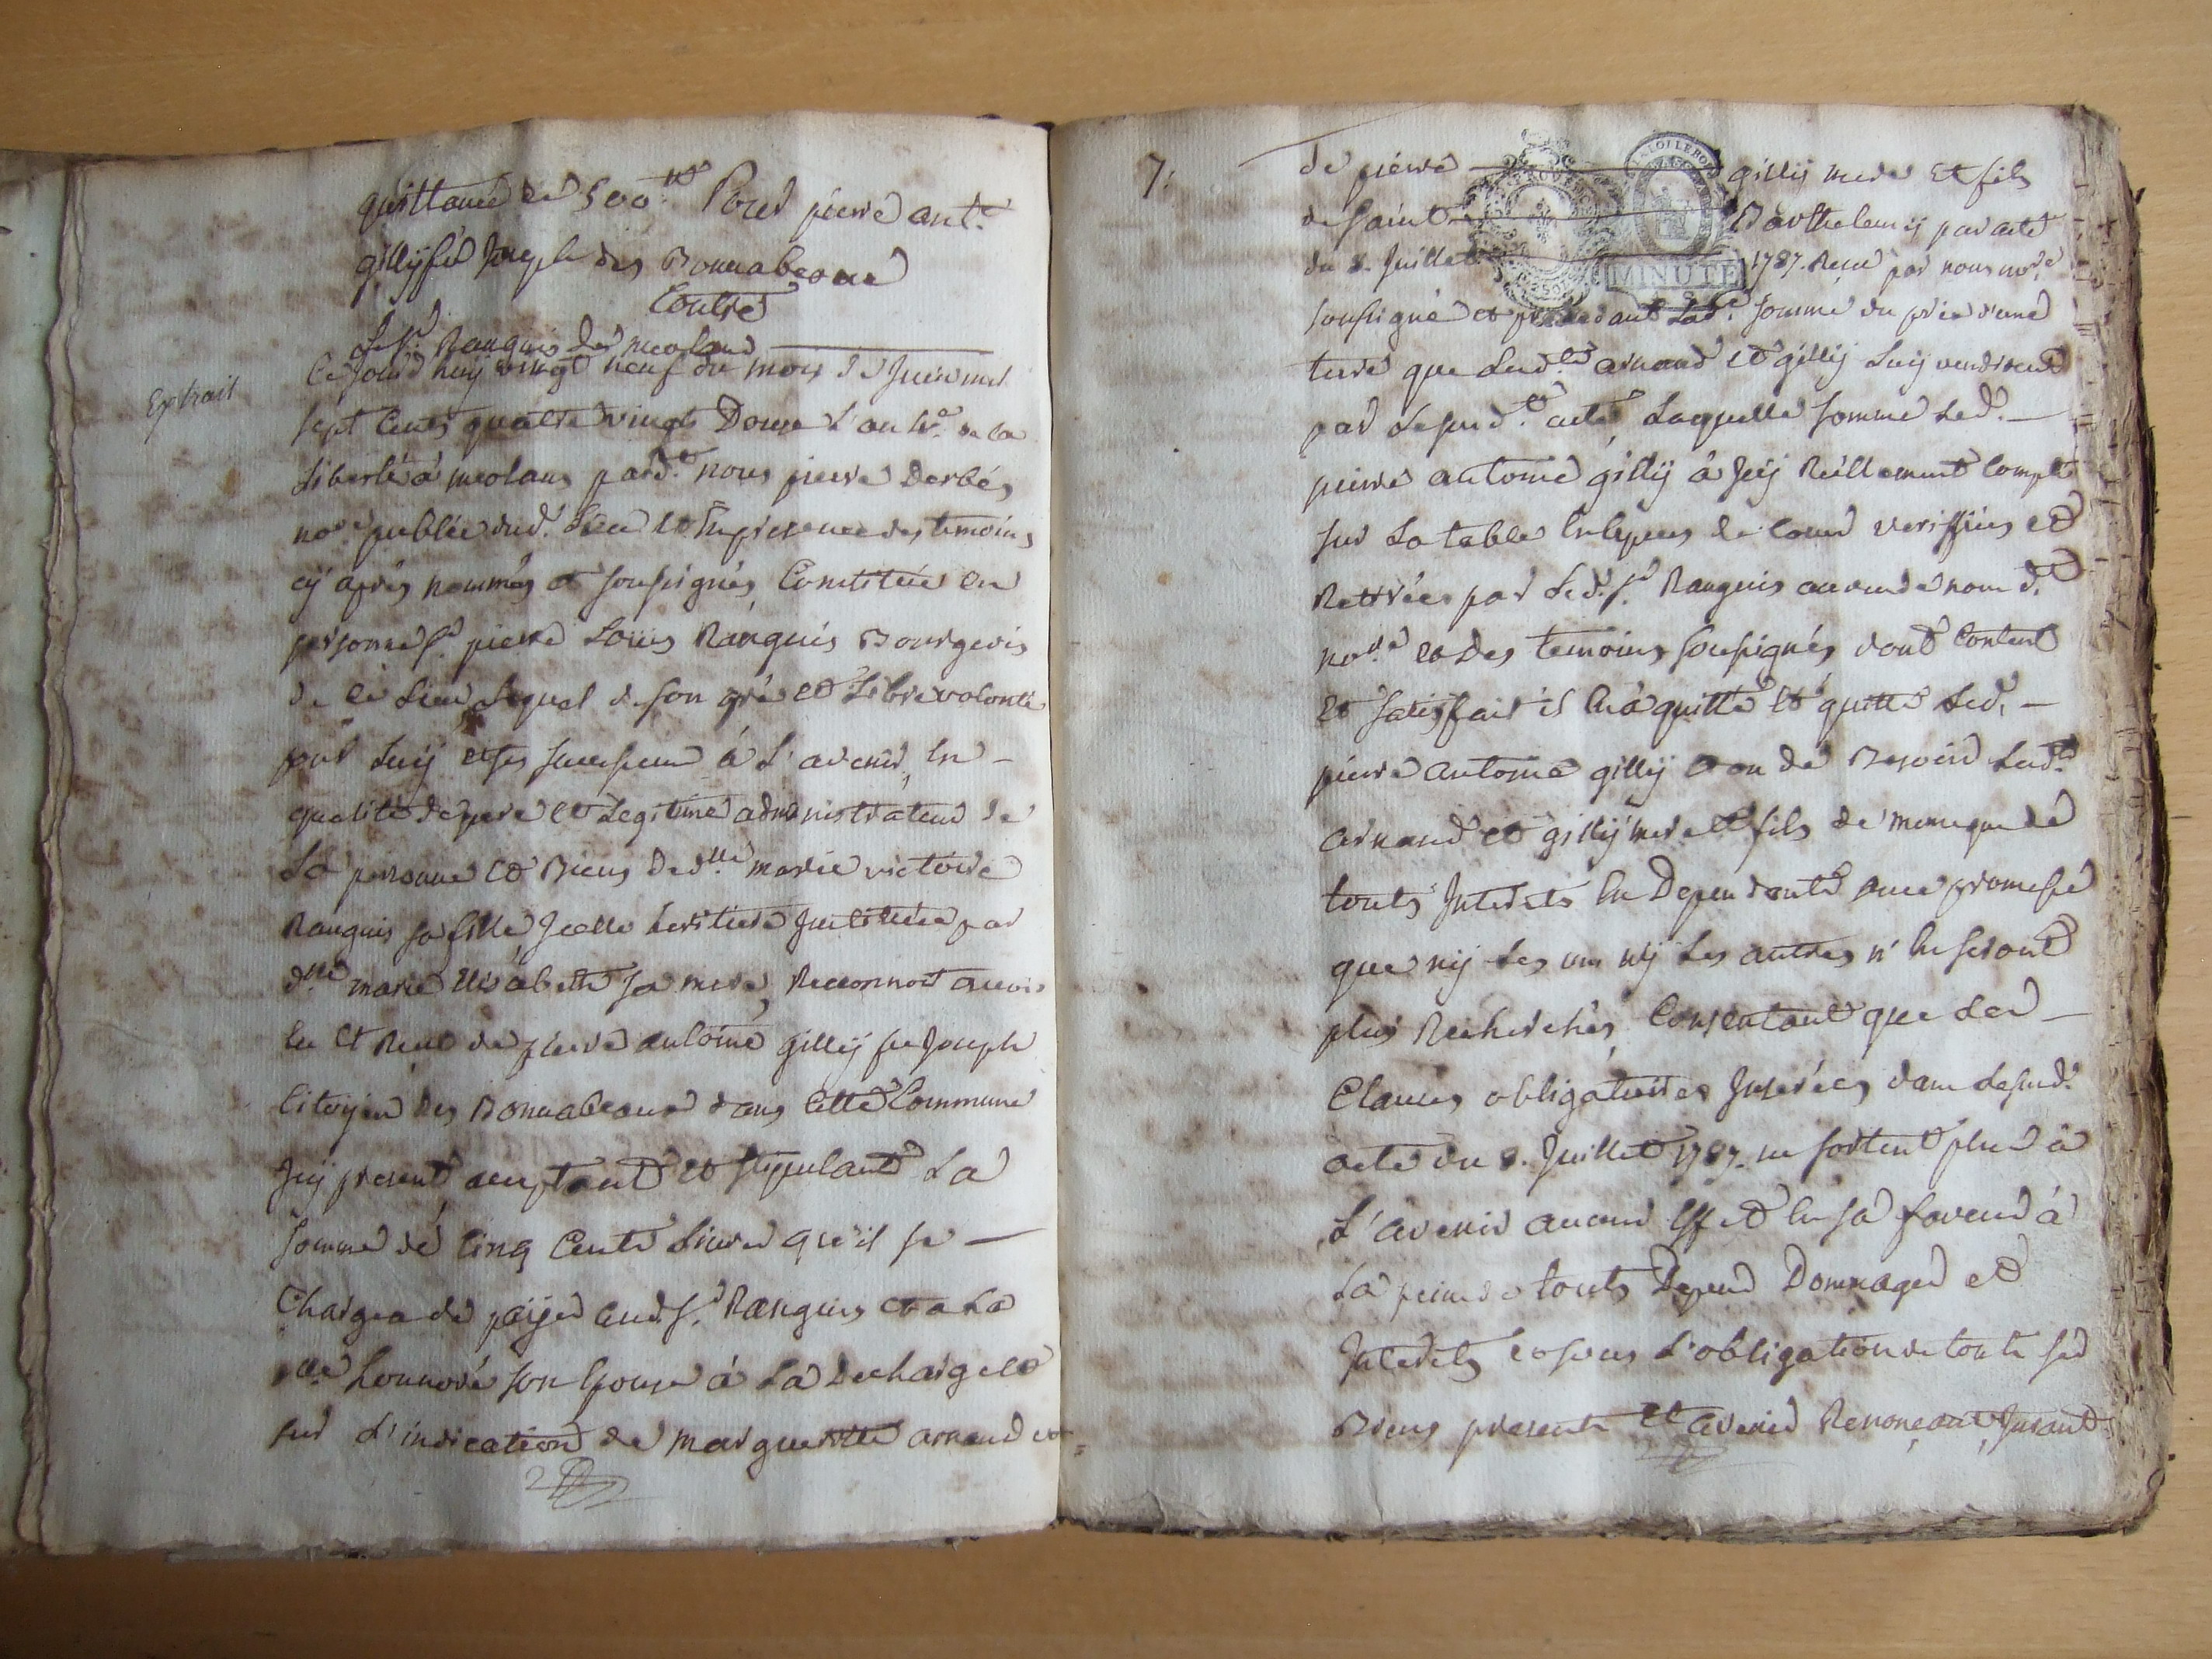 quittance de 500.tt Pour pierre ant.e
gillÿ feu Joseph des Bonnabeoux
Contre
Le s.r Ranguis de meolans
Extrait
Ce jourd'huÿ vingt neuf du mois de Juin mil
sept Cents quatre vingts Douze L'an 4.e de la
Liberté a meolans pard.t nous pierre Derbés
no.re public dud. Lieu et En presence des temoins
cÿ après nommés et soussignés, Constitué en
personne s.r pierre Loüis Ranguis Bourgeois
de ce Lieu Lequel de son gré et Libre volonté
pour Luij et ses successeurs à L'avenir, En -
qualité de pere et Legitime administrateur de
La personne et Biens de d.lle marie victoire
Ranguis sa fille, Jcelle heritiere Jnstituée par
d.lle marie Elisabeth sa mere, Reconnoit avoir
Eu et Reçu de pierre antoine gillÿ feu Joseph
Citoÿen des Bonnabeoux dans Cette Commune
Jcÿ present acceptant et stipulant La
somme de Cinq Cents Livres qu'il se -
Chargea de païer aud. s.r Ranguis et a La
d.lle honnoré son Epouse à La Decharge et
sur L'indication de margueritte arnaud et
7.
de pierre gillÿ mere et fils
de Saint Barthelemÿ par acte
du 8. Juillet 1787. Reçu par nous no.re
MINUTE
soussigné et procedant Lad. somme du prix d'une
terre que Lesd.ts arnaud et gillÿ Luij vendirent
par Lesusd.t acte, Laquelle somme Led. -
pierre antoine gillÿ à Jcÿ Réellement Compté
sur La table En Espèces de Cours veriffiées et
Rettirées par Led. s.r Ranguis au vu de nous d.t
no.re et des temoins soussignés dont Content
et satisfait il En à quitté et quitte Led. -
pierre antoine gillÿ et au de Besoin Lesd.ts
arnaud et gillÿ mere et fils de meme que de
touts Jnterets En Dependants avec promesse
que nÿ Les uns nÿ Les autres n'En seront
plus Recherchés, Consentant que Les -
Clauses obligatoires Jnserées dans Lesusd.
acte du 8. Juillet 1787. ne sortent plus à
L'avenir aucun Effet En sa faveur à
La peine de touts Depens Dommages et
Jnterets et sous L'obligation de touts ses
Biens presents et avenir Renonçant, Jurant